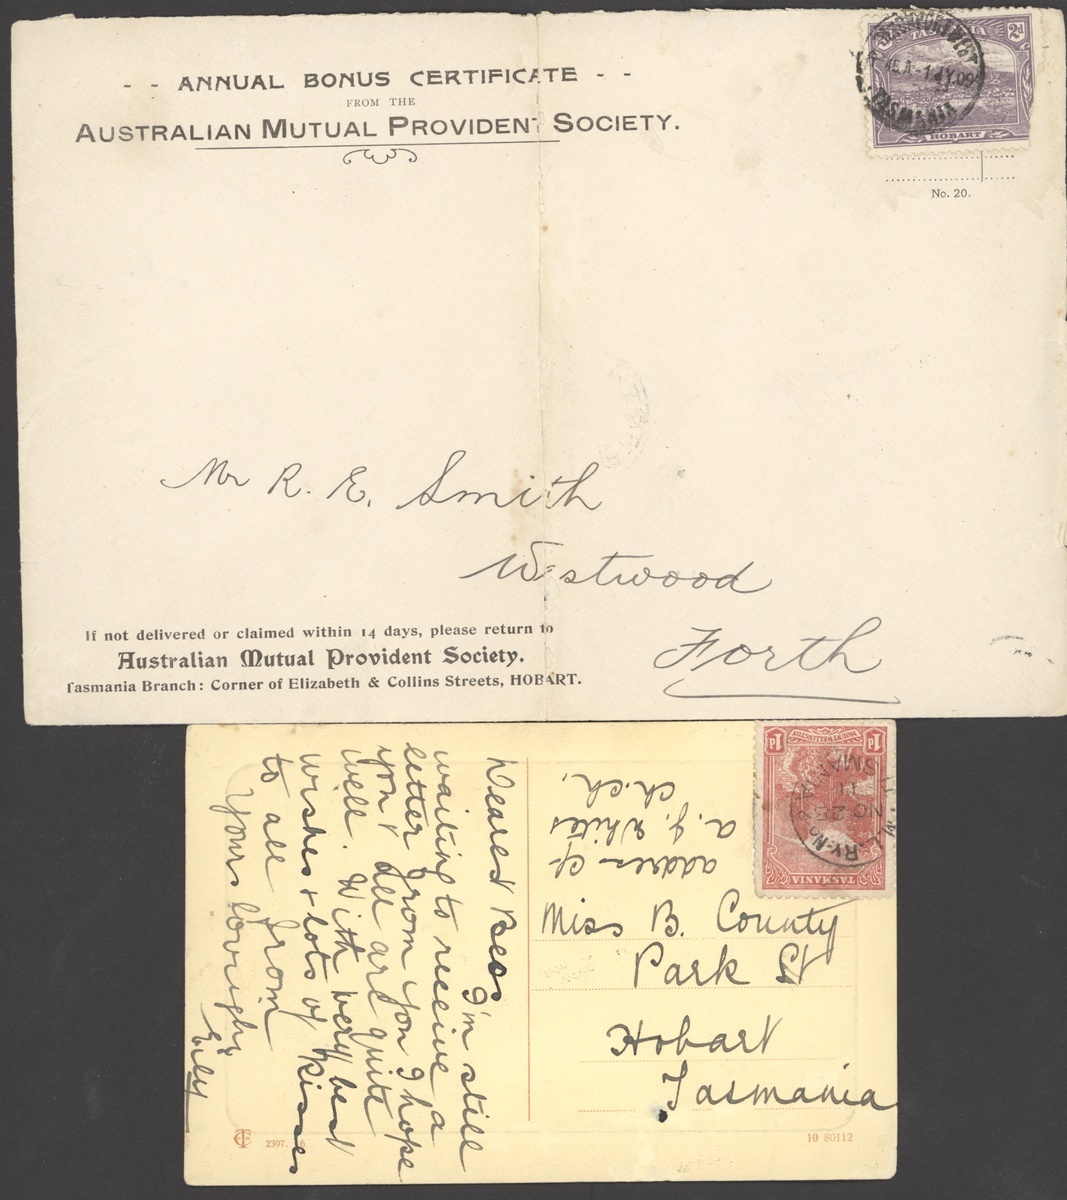 - - ANNUAL BONUS CERTIFICATE - -
FROM THE
AUSTRALIAN MUTUAL PROVIDENT SOCIETY.
TASMANIA
2d
HOBART
TASMANIA
No. 20.
Mr R. E. Smith
Westwood
Forth
If not delivered or claimed within 14 days, please return to
Australian Mutual Provident Society.
Tasmania Branch: Corner of Elizabeth & Collins Streets, HOBART.
Dearest Bees,
I'm still
waiting to receive a
letter from you I hope
you & all are quite
well. With very best
wishes & lots of kisses
to all from
Yours lovingly
Eily
address of
a. J. Whites
ch.ch.
Miss B. County
Park St
Hobart
Tasmania
1d 1d
MOUNT WELLINGTON
TASMANIA
NO 25
11
2397. 6
10 80112